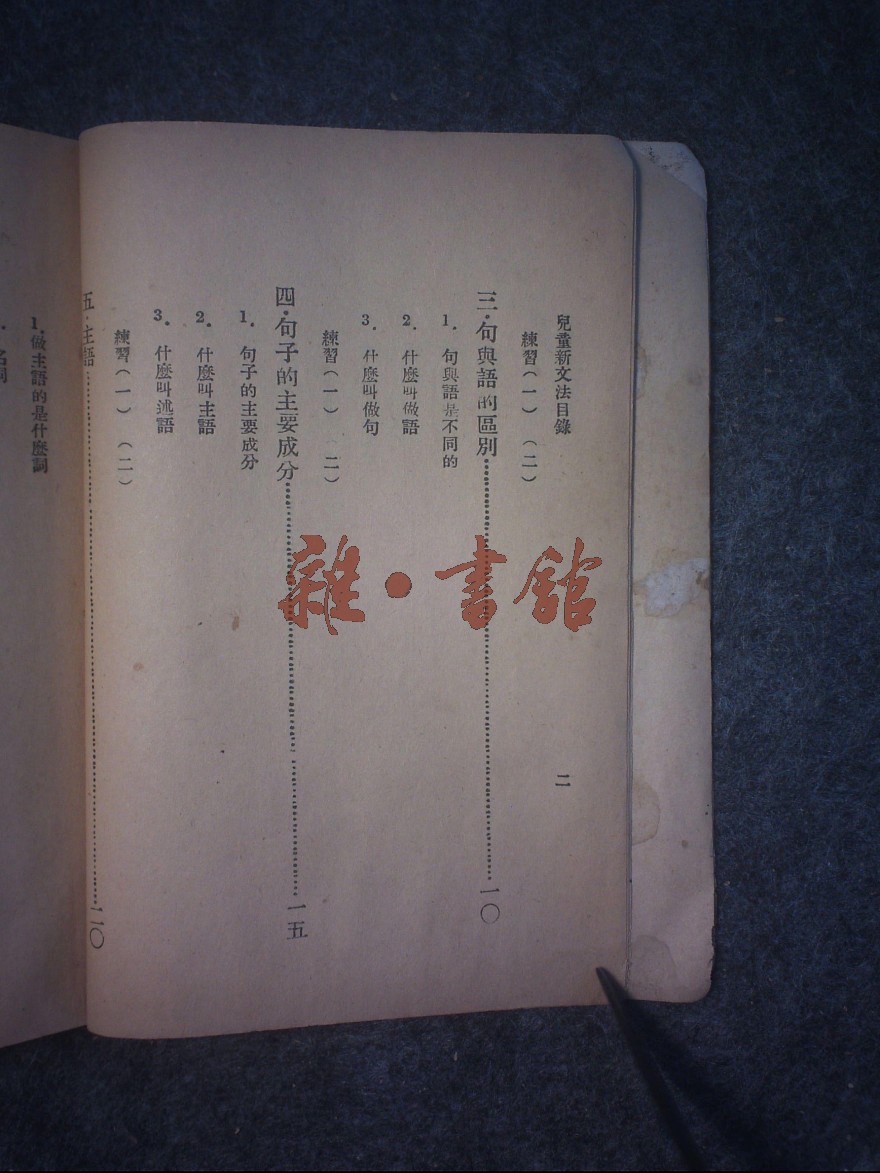 兒童新文法目錄 二
練習(一) (二)
三·句與語的區別 一〇
1. 句與語是不同的
2. 什麼叫做語
3. 什麼叫做句
練習(一) (二)
四·句子的主要成分 一五
1. 句子的主要成分
2. 什麼叫主語
3. 什麼叫述語
練習(一) (二)
五·主語 二〇
1. 做主語的是什麼詞
名詞
雜·書館